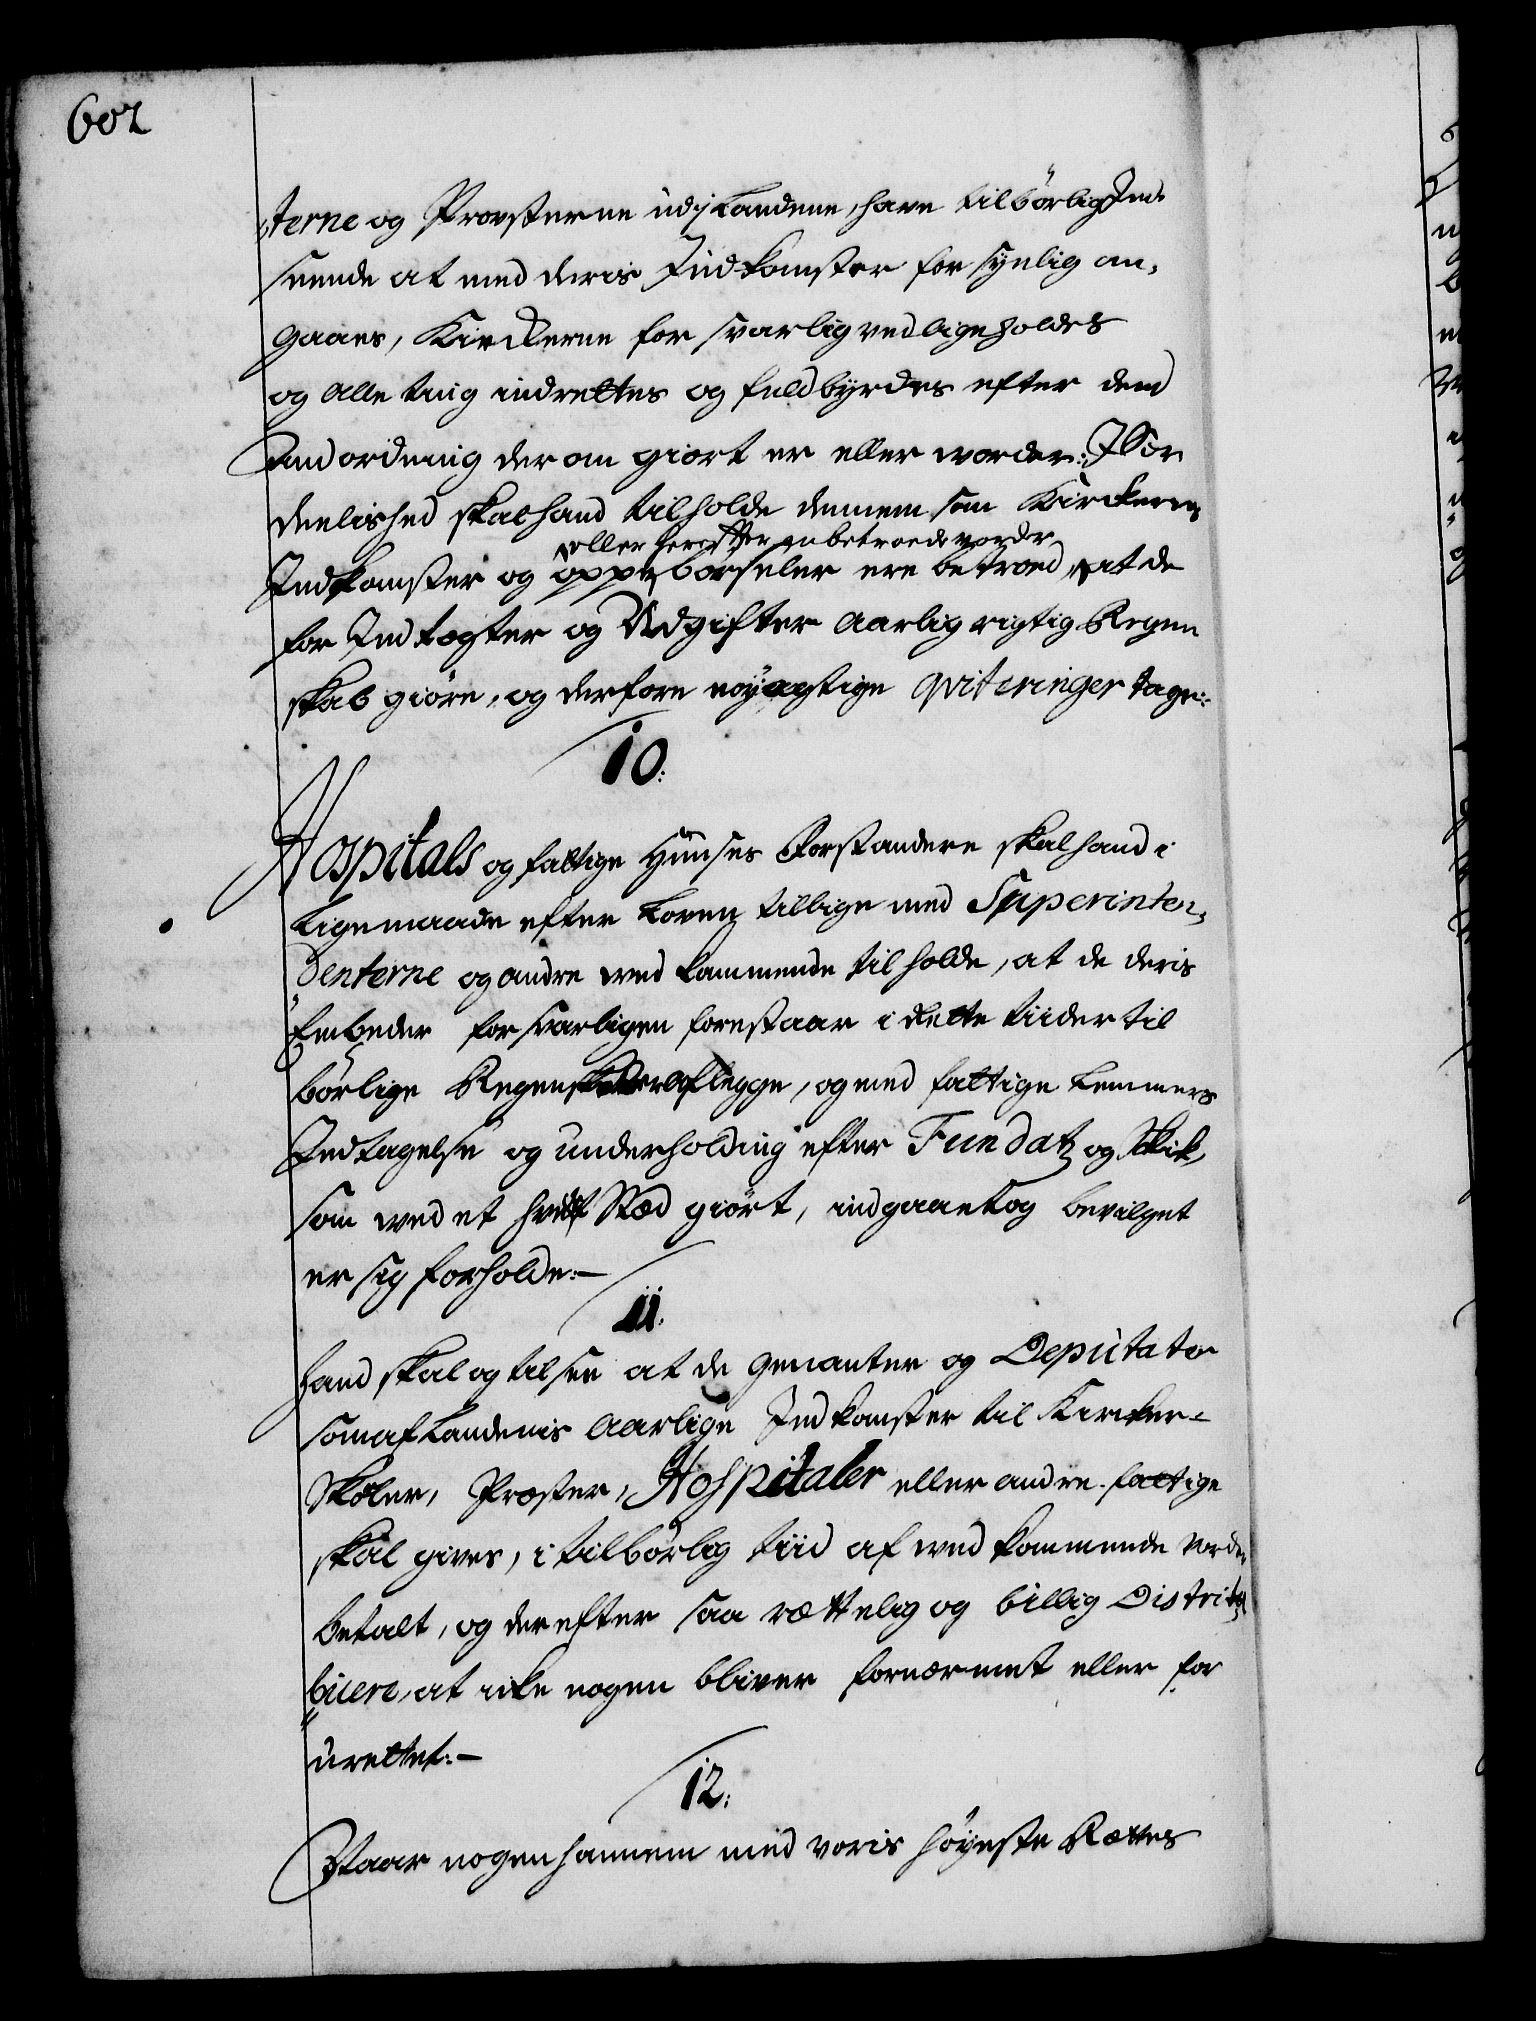 602
terne og Provsterne udj Landene, have tilbörlig Ind-
seende at med deris Indkomster forsynlig om-
gaaes, Kirckerne forsvarlig vedligeholdes
og alle ting indrettes og fuldbyrdes efter dend
Andordning derom giort er eller worder: J Sör
deelished skal hand tilholde dennem som Kirckernes
eller herefter anbetroede vorder
Indkomster og oppeborseler ere betroed, at de
for Indtegter og Udgifter aarlig rigtig Regen
skab giöre, og derfore nöyagtige qviteringer tage:
10:
Hospitals og fattige Huuses Forstandere skal hand i
Ligemaade efter Loven tillige med Superinten-
denterne og andre wedkommende tilholde, at de deris
Embeder forsvarligen forestaar i rette tiider til
börlige Regenskaber aflegge, og med fattige Lemmers
Indtagelse og underholding efter Fundatz og Skik,
som wed et hvert Stæd giört, indgaaet og bevilget
er sig forholde:-
11.
Hand skal og tilsee at de Genanter og Deputater
som af Landenis aarlige Indkomster til Kircker-
Skoler, Præster, Hospitaler eller andre fattige
skal gives, i tilbörlig tiid af wedkommende vorder
betalt, og derefter saa rættelig og billig Distri-
buere, at icke nogen bliver fornærmet eller for
urettet:-
12:
Staar nogen hannem med voris höyeste Rættes